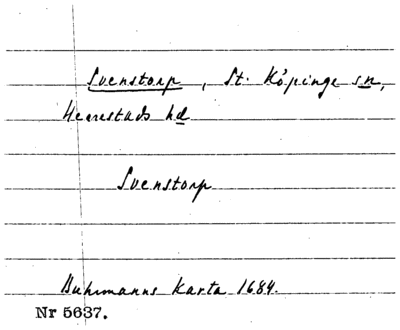 Svenstorp, St. Köpinge sn,
Herrestads hd
Svenstorp
Buhrmanns Karta 1684.
Nr 5637.